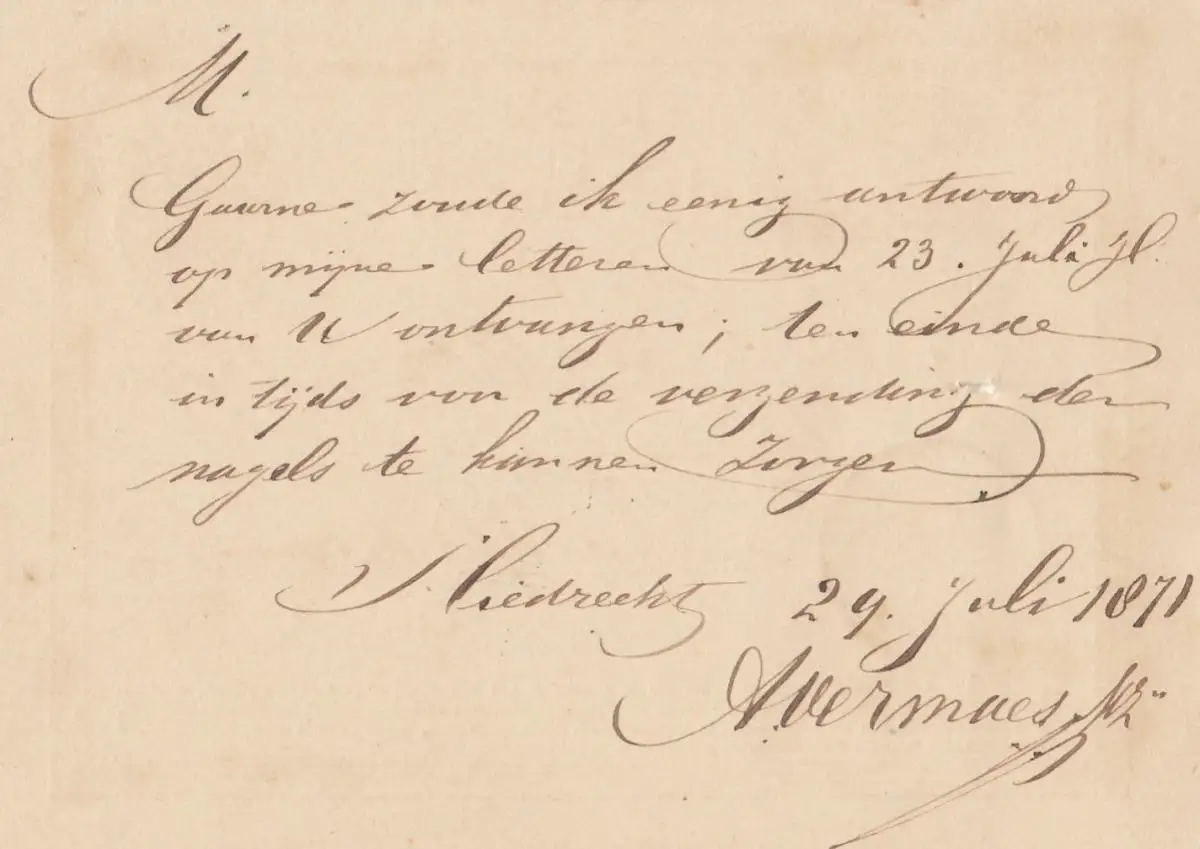 M.
Gaarne zoude ik eenig antwoord
op mijne letteren van 23. Juli Jl.
van U ontvangen; ten einde
in tijds voor de verzending der
nagels te kunnen zorgen
Sliedrecht 29. Juli 1871
A Vermaes Nz